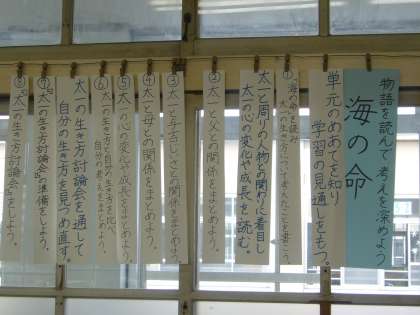 物語を読んで考えを深めよう
海の命
単元のめあてを知り
学習の見通しをもつ。
①「海の命」を読み
太一の生き方について考えたことを書こう。
太一と周りの人物との関わりに着目し
太一の心の変化や成長を読む。
②太一と父との関係をまとめよう。
③太一と与吉じいさとの関係をまとめよう。
④太一と母との関係をまとめよう。
⑤太一の心の変化や成長をまとめよう。
⑥太一の生き方と自分の生き方を比べ
自分の考えをまとめよう。
太一の生き方討論会を通して
自分の生き方を見つめ直す。
⑦「太一の生き方討論会」の準備をしよう。
⑧「太一の生き方討論会」をしよう。